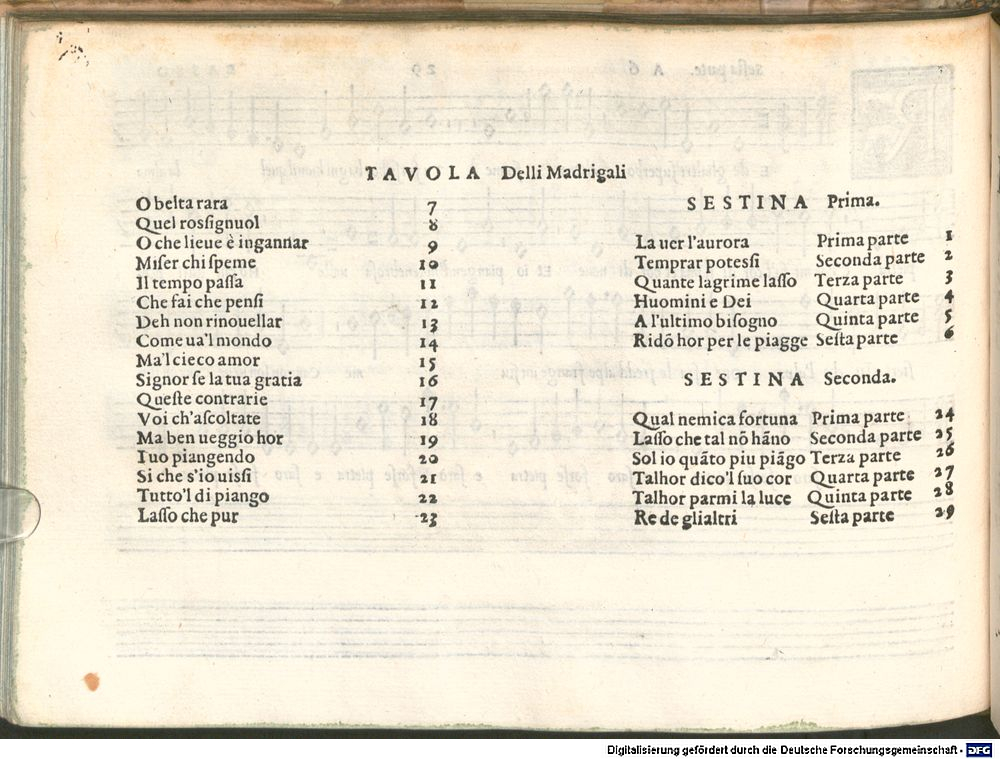 TAVOLA Delli Madrigali
O belta rara 7
Quel rossignuol 8
O che lieue è ingannar 9
Miſer chi ſpeme 10
Il tempo paſſa 11
Che fai che penſi 12
Deh non rinouellar 13
Come ua'l mondo 14
Ma'l cieco amor 15
Signor ſe la tua gratia 16
Queſte contrarie 17
Voi ch'aſcoltate 18
Ma ben ueggio hor 19
I uo piangendo 20
Si che s'io uiſſi 21
Tutto'l di piango 22
Laſſo che pur 23
SESTINA Prima.
La uer l'aurora Prima parte 1
Temprar poteſſi Seconda parte 2
Quante lagrime laſſo Terza parte 3
Huomini e Dei Quarta parte 4
A l'ultimo biſogno Quinta parte 5
Ridō hor per le piagge Seſta parte 6
SESTINA Seconda.
Qual nemica fortuna Prima parte 24
Laſſo che tal nō hāno Seconda parte 25
Sol io quāto piu piāgo Terza parte 26
Talhor dico'l ſuo cor Quarta parte 27
Talhor parmi la luce Quinta parte 28
Re de glialtri Seſta parte 29
Digitalisierung gefördert durch die Deutsche Forschungsgemeinschaft - DFG